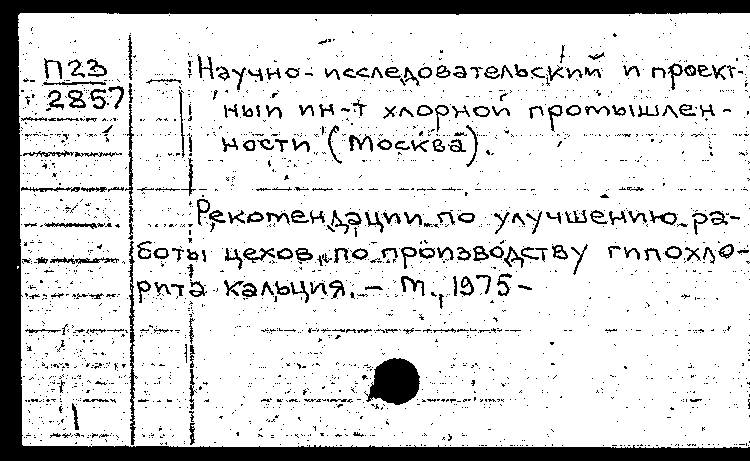 П23
2857
Научно-исследовательский и проект-
ный ин-т хлорной промышлен-
ности (Москва).
Рекомендации по улучшению ра-
боты цехов по производству гипохло-
рита кальция. – М., 1975 –